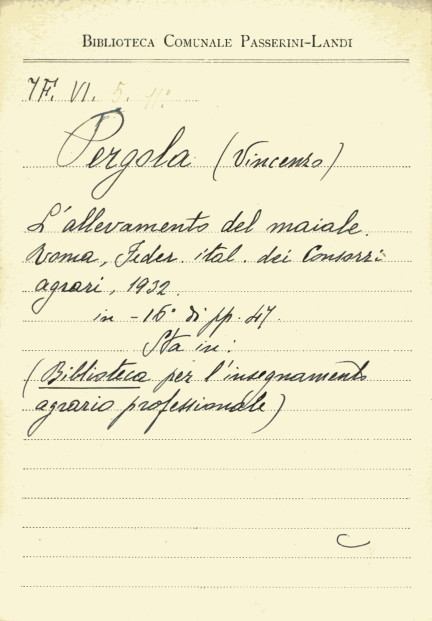 BIBLIOTECA COMUNALE PASSERINI-LANDI
7F. VI. 5. 11.
Pergola (Vincenzo)
L'allevamento del maiale.
Roma, Feder. ital. dei Consorzi
agrari, 1932.
in -16° di pp. 47.
Sta in:
(Biblioteca per l'insegnamento
agrario professionale)
C